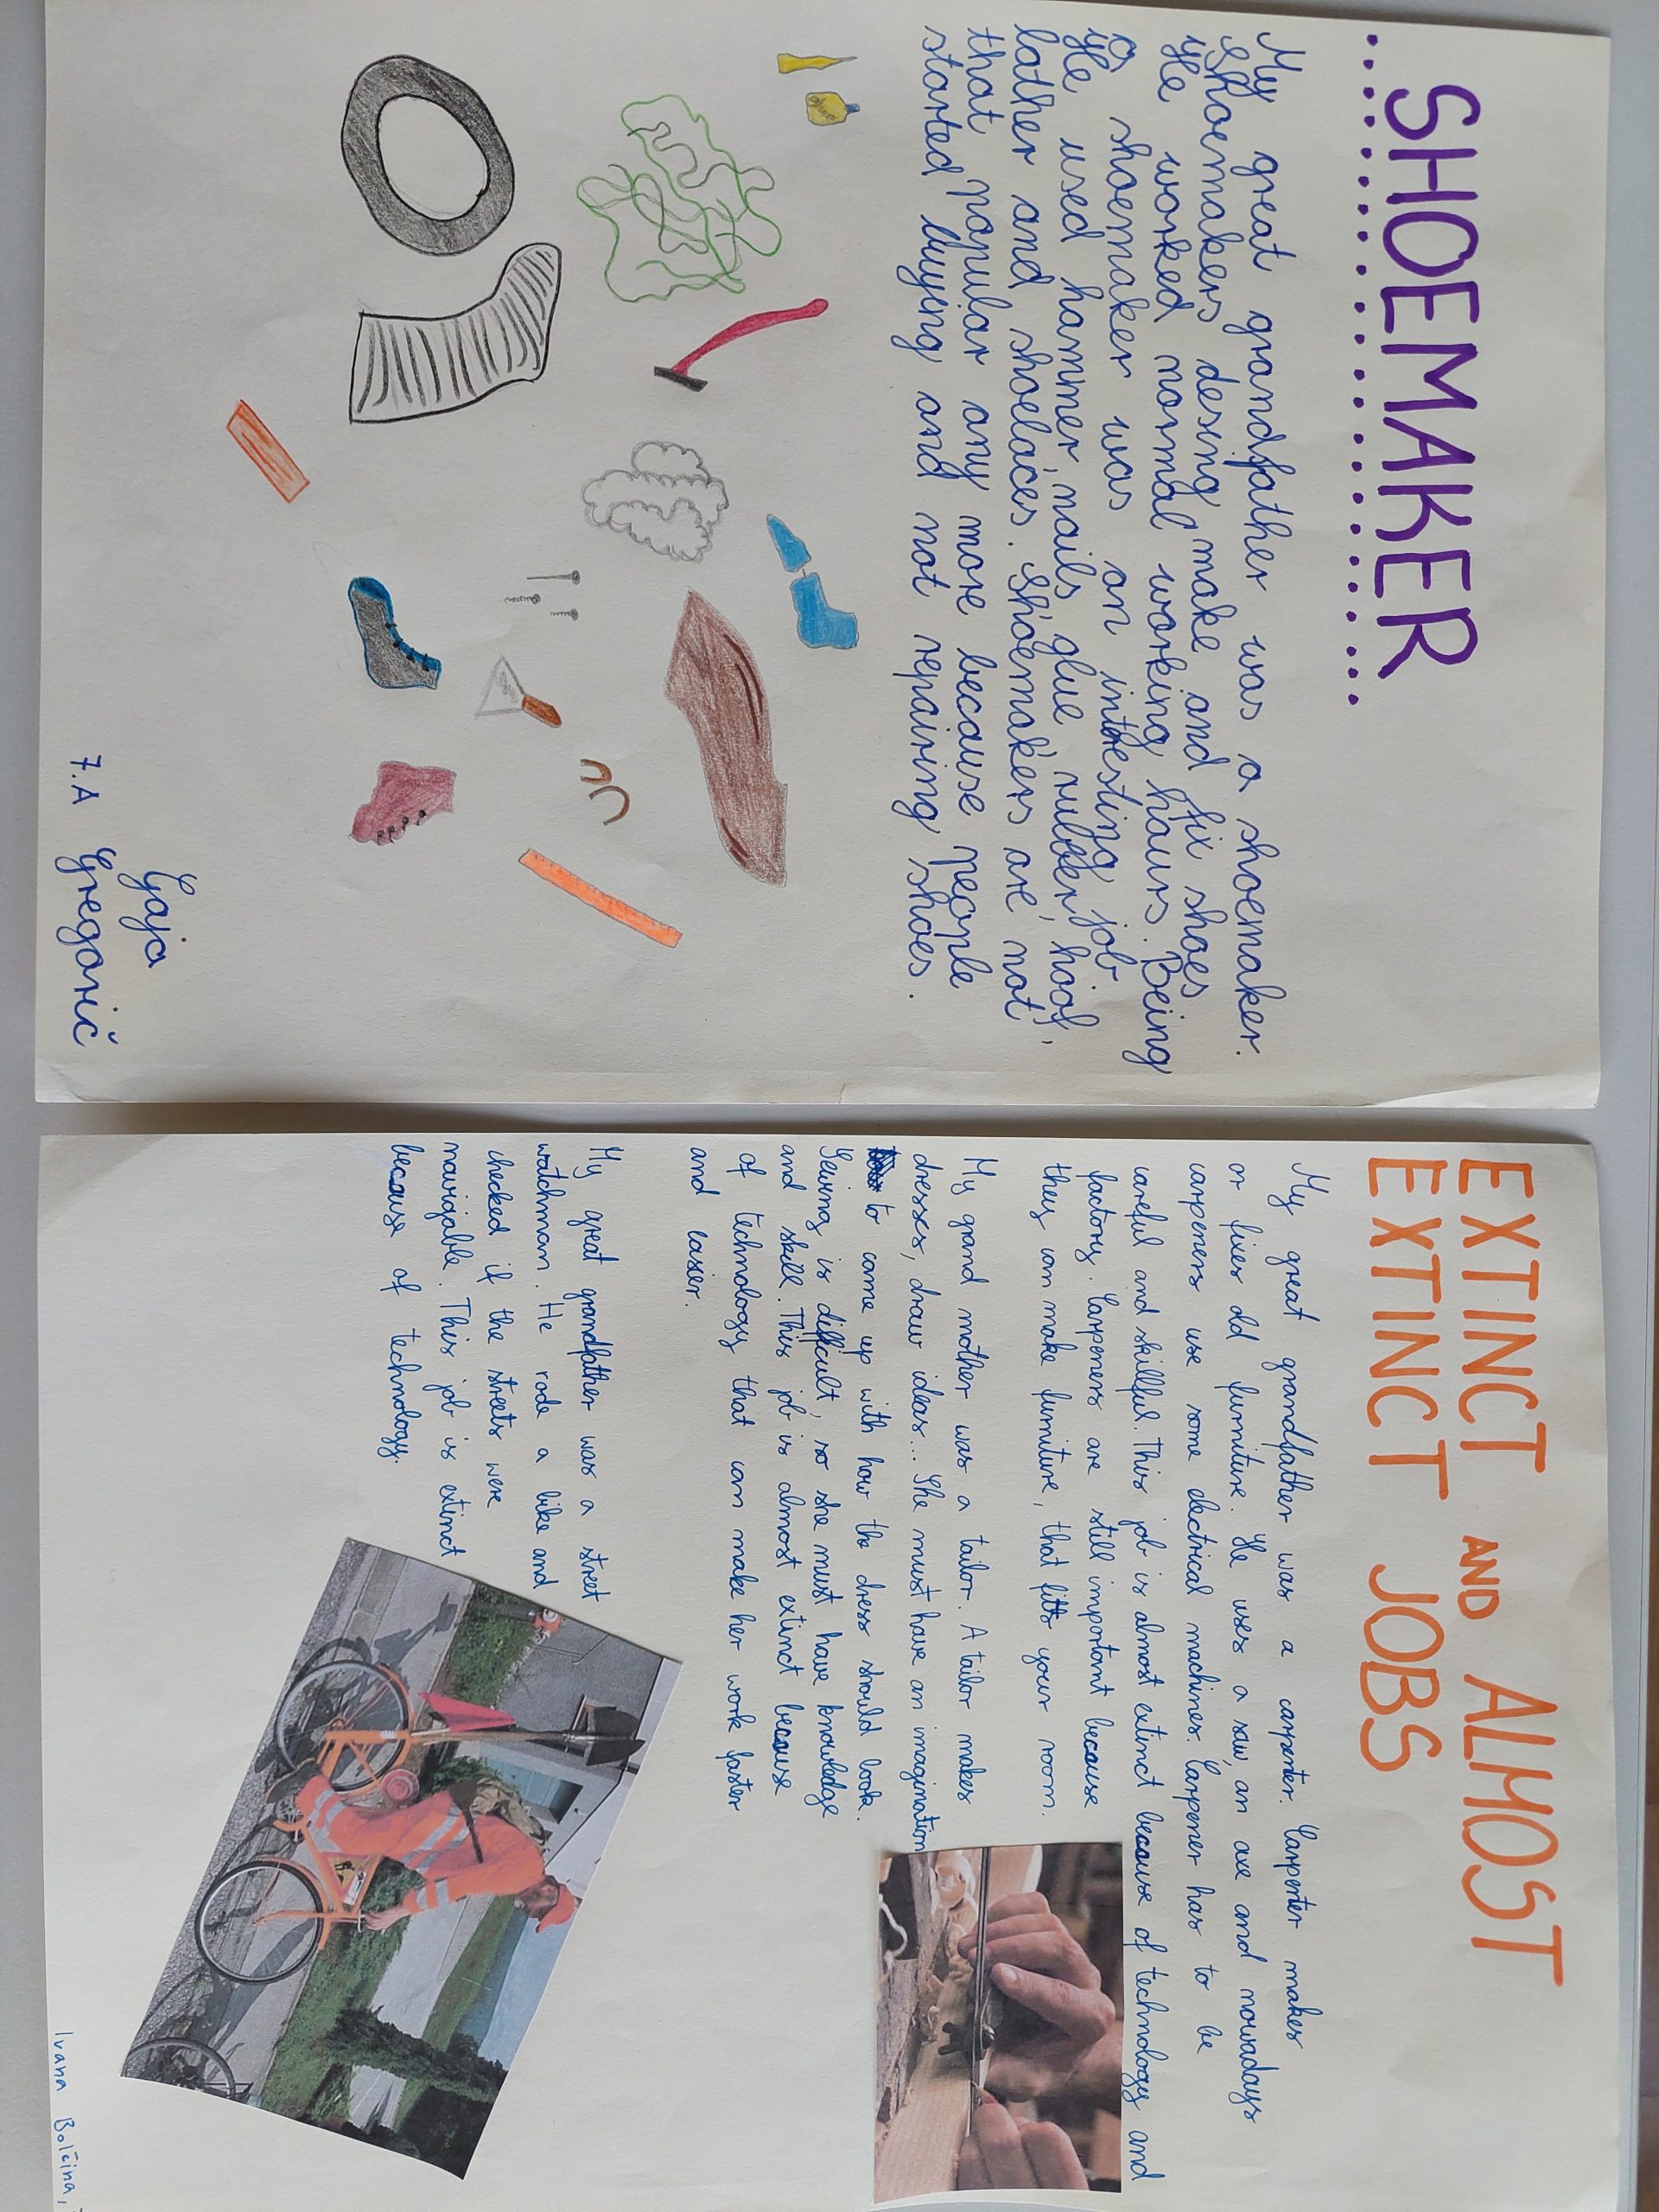 SHOEMAKER
My great grandfather was a shoemaker.
Shoemakers desing, make and fix shoes
He worked normal working hours. Being
a shoemaker was an intresting job.
He used hammer, nails, glue, rubber, hoof,
lather and shoelaces. Shoemakers are not
that popular any more because people
started buying and not repairing shoes.
glue
Gaja
Gregorič
7.A
EXTINCT AND ALMOST
EXTINCT JOBS
My great grandfather was a carpenter. Carpenter makes
or fixes old furniture. He uses a saw, an axe and nowadays
carpeners use some electrical machines. Carpener has to be
careful and skillful. This job is almost extinct because of technology and
factory. Carpeners are still important because
they can make furniture, that fits your room.
My grand mother was a tailor. A tailor makes
dresses, draw ideas... She must have an imagination
to come up with how the dress should look.
Sewing is difficult, so she must have knowledge
and skill. This job is almost extinct because
of technology that can make her work faster
and easier.
My great grandfather was a street
watchman. He rode a bike and
checked if the streets were
navigable. This job is extinct
because of technology.
Ivana Bolčina,